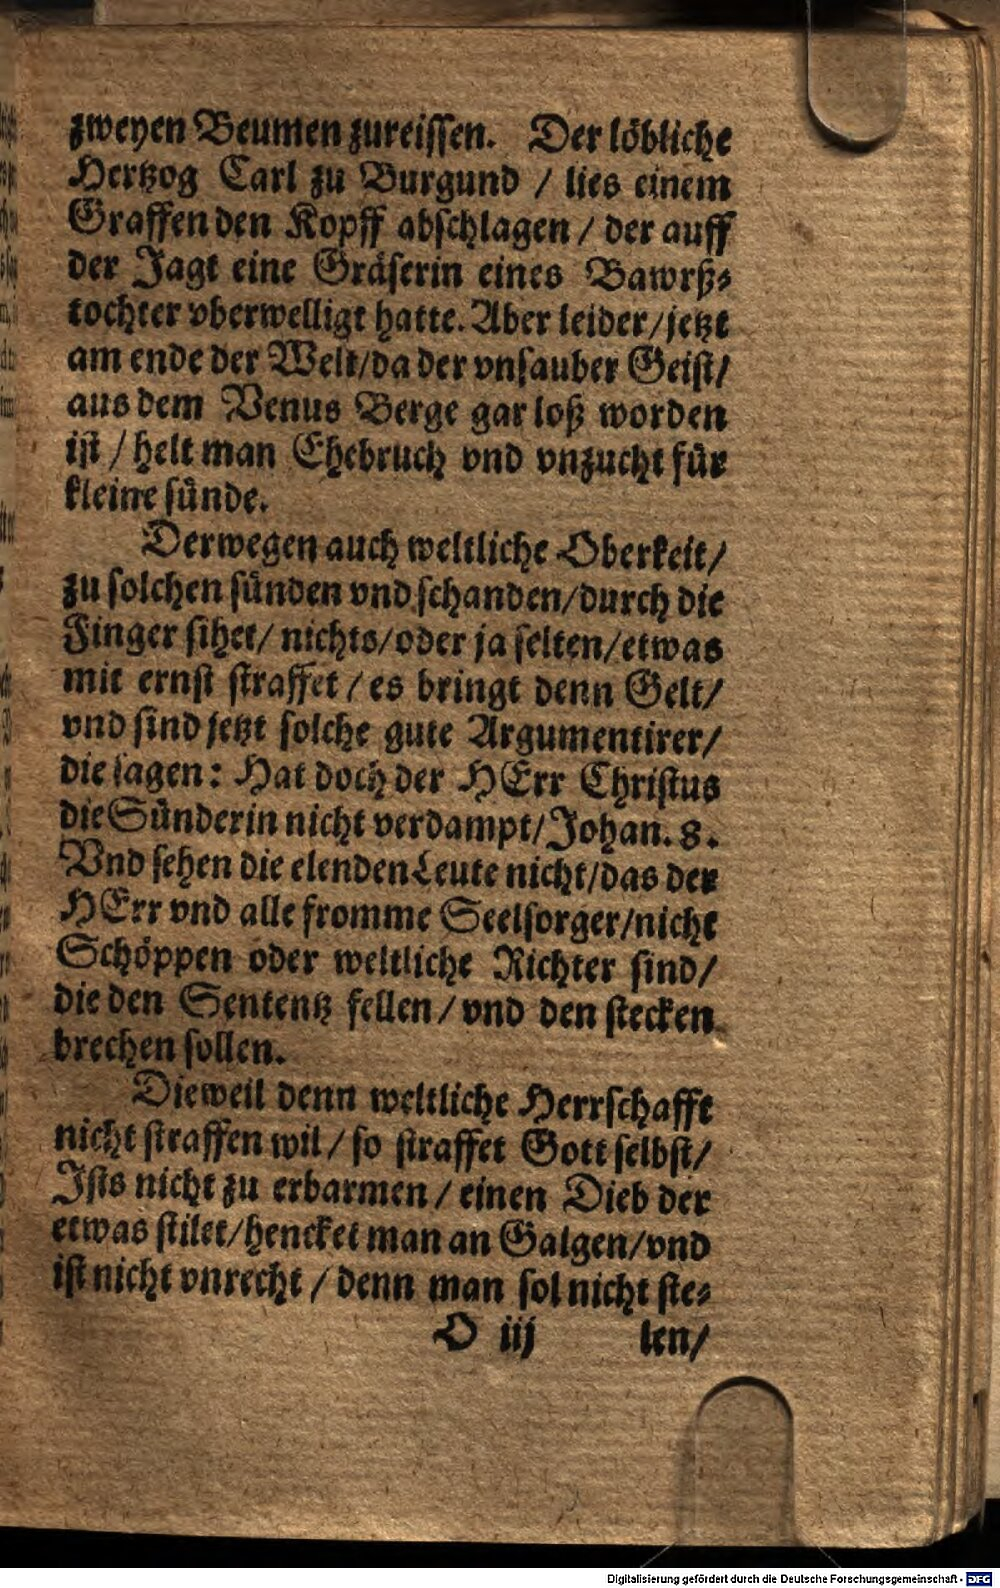 zweyen Beumen zureissen. Der löbliche
Hertzog Carl zu Burgund / lies einem
Graffen den Kopff abschlagen / der auff
der Jagt eine Gräserin eines Bawrß-
tochter vberwelligt hatte. Aber leider/jetzt
am ende der Welt/da der vnsauber Geist/
aus dem Venus Berge gar loß worden
ist / helt man Ehebruch vnd vnzucht für
kleine sünde.
Derwegen auch weltliche Oberkeit/
zu solchen sünden vnd schanden/durch die
Finger sihet/ nichts/oder ja selten/etwas
mit ernst straffet / es bringt denn Gelt/
vnd sind jetzt solche gute Argumentirer/
die sagen: Hat doch der HErr Christus
die Sünderin nicht verdampt/Johan. 8.
Vnd sehen die elenden Leute nicht/das der
HErr vnd alle fromme Seelsorger/nicht
Schöppen oder weltliche Richter sind/
die den Sententz fellen / vnd den stecken
brechen sollen.
Dieweil denn weltliche Herrschafft
nicht straffen wil / so straffet Gott selbst/
Ists nicht zu erbarmen / einen Dieb der
etwas stilet/hencket man an Galgen/vnd
ist nicht vnrecht / denn man sol nicht ste-
O iij len/
Digitalisierung gefördert durch die Deutsche Forschungsgemeinschaft - DFG